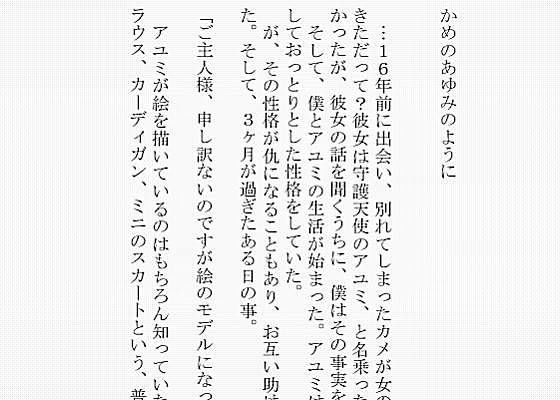 かめのあゆみのように
…16年前に出会い、別れてしまったカメが女の
きただって？彼女は守護天使のアユミ、と名乗った
かったが、彼女の話を聞くうちに、僕はその事実を
そして、僕とアユミの生活が始まった。アユミは
しておっとりとした性格をしていた。
が、その性格が仇になることもあり、お互い助け
た。そして、3ヶ月が過ぎたある日の事。
「ご主人様、申し訳ないのですが絵のモデルになっ
アユミが絵を描いているのはもちろん知っていた
ラウス、カーディガン、ミニのスカートという、普